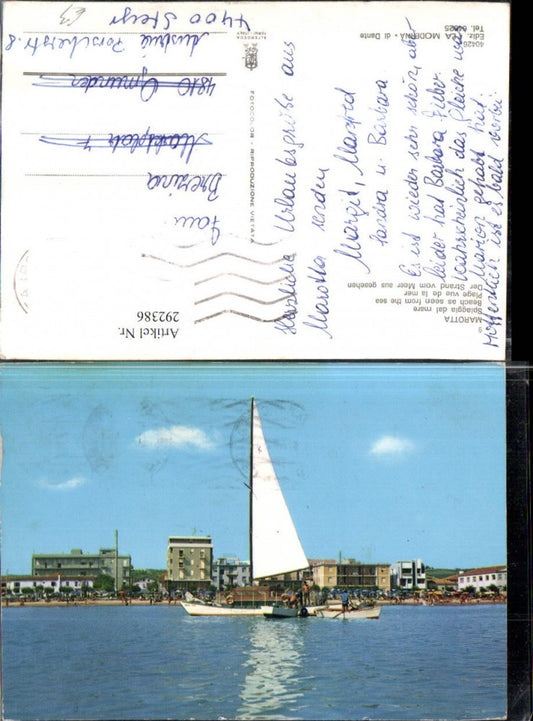 MAROTTA
Spiaggia dal mare
Beach as seen from the sea
Plage vue de la mer
Der Strand vom Meer aus gesehen
Herzliche Urlaubsgrüße aus
Marotta senden
Margit, Manfred
Sandra u. Barbara
Es ist wieder sehr schön, aber
leider hat Barbara Fieber.
Wahrscheinlich das Gleiche was
Marion gehabt hat.
Hoffentlich ist es bald vorbei.
Ediz. LEA MODERNA - di Dante
Tel.
FOTOCOLOR - RIPRODUZIONE VIETATA
Fam.
Brezina
Marktplatz 7
4810 Gmunden
Austria Porscherstr. 8
4400 Steyr
Artikel Nr.
292386